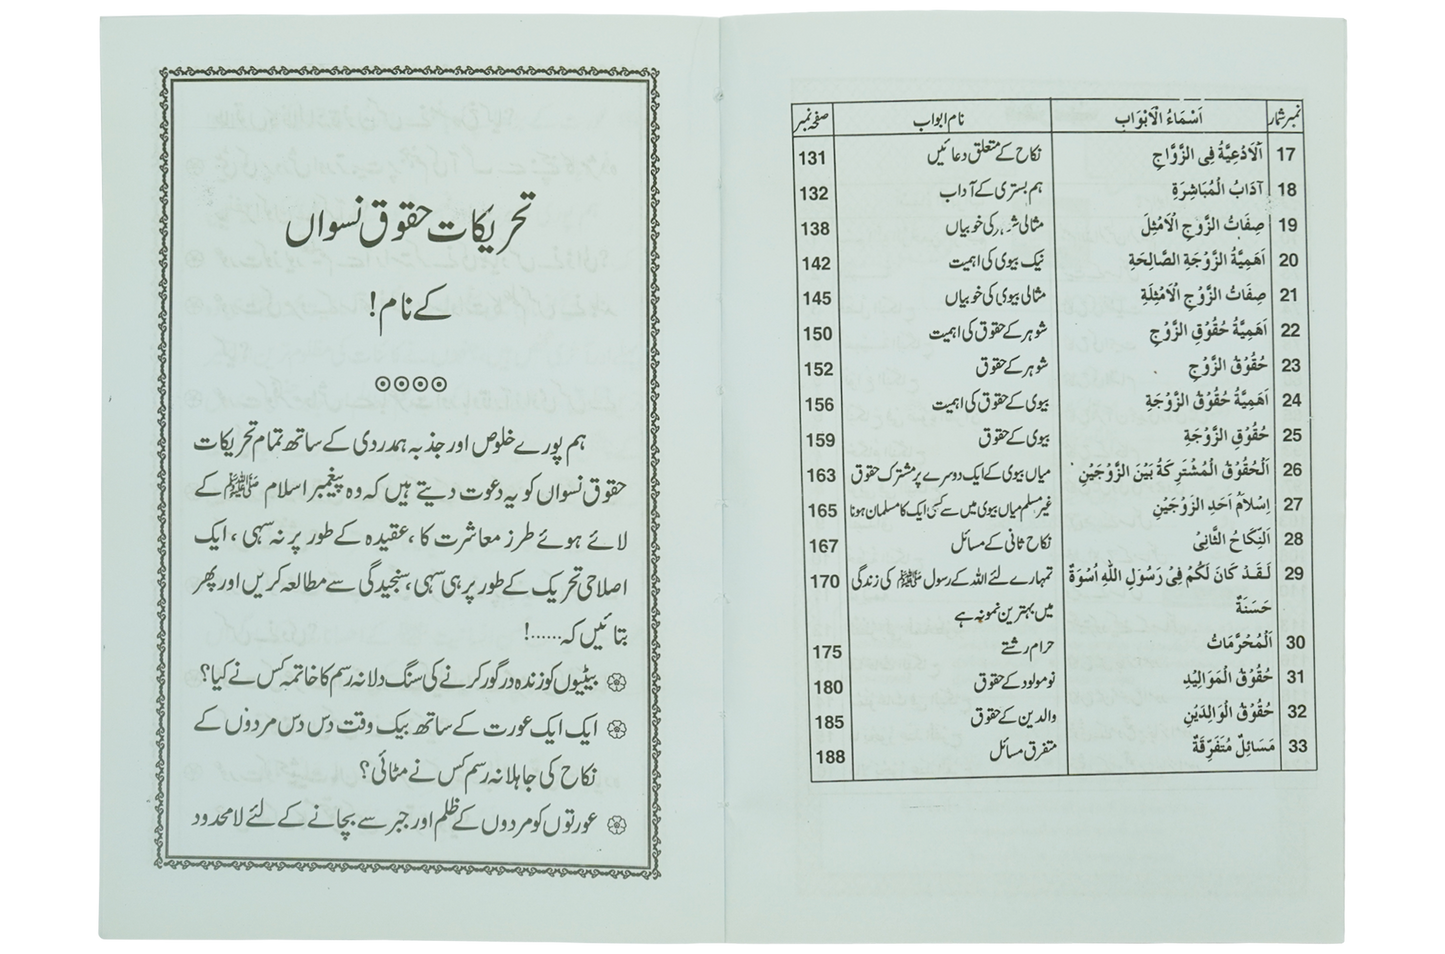 نمبر شمار اَسْمَاءُ الْاَبْوَاب نام ابواب صفحہ نمبر
17 اَلْاَدْعِيَّةُ فِى الزَّوَّاجِ نکاح کے متعلق دعائیں 131
18 آدَابُ الْمُبَاشِرَةِ ہم بستری کے آداب 132
19 صِفَاتُ الزَّوْجِ الْاَمْثِلَ مثالی شوہر کی خوبیاں 138
20 اَهَمِيَّةُ الزَّوْجَةِ الصَّالِحَةِ نیک بیوی کی اہمیت 142
21 صِفَاتُ الزَّوْجِ الْاَمْثِلَةِ مثالی بیوی کی خوبیاں 145
22 اَهَمِيَّةُ حُقُوْقِ الزَّوْجِ شوہر کے حقوق کی اہمیت 150
23 حُقُوْقُ الزَّوْجِ شوہر کے حقوق 152
24 اَهَمِيَّةُ حُقُوْقُ الزَّوْجَةِ بیوی کے حقوق کی اہمیت 156
25 حُقُوْقِ الزَّوْجَةِ بیوی کے حقوق 159
26 اَلْحُقُوْقُ الْمُشْتَرِكَةُ بَيْنَ الزَّوْجَيْنِ میاں بیوی کے ایک دوسرے پر مشترک حقوق 163
27 اِسْلاَمُ اَحَدِ الزَّوْجَيْنِ غیر مسلم میاں بیوی میں سے کسی ایک کا مسلمان ہونا 165
28 اَلنِّكَاحُ الثَّانِىْ نکاح ثانی کے مسائل 167
29 لَقَدْ كَانَ لَكُمْ فِىْ رَسُوْلِ اللّٰهِ اُسْوَةٌ تمہارے لئے اللہ کے رسول ﷺ کی زندگی 170
حَسَنَةٌ میں بہترین نمونہ ہے
30 اَلْمُحَرَّمَاتُ حرام رشتے 175
31 حُقُوْقُ الْمَوَالِيْدِ نومولود کے حقوق 180
32 حُقُوْقُ الْوَالِدَيْنِ والدین کے حقوق 185
33 مَسَائِلٌ مُتَفَرِّقَةٌ متفرق مسائل 188
تحریکات حقوق نسواں
کے نام!
ہم پورے خلوص اور جذبہ ہمدردی کے ساتھ تمام تحریکات
حقوق نسواں کو یہ دعوت دیتے ہیں کہ وہ پیغمبر اسلام ﷺ کے
لائے ہوئے طرز معاشرت کا ، عقیدہ کے طور پر نہ سہی ، ایک
اصلاحی تحریک کے طور پر ہی سہی ، سنجیدگی سے مطالعہ کریں اور پھر
بتائیں کہ.....!
بیٹیوں کو زندہ درگور کرنے کی سنگ دلانہ رسم کا خاتمہ کس نے کیا؟
ایک ایک عورت کے ساتھ بیک وقت دس دس مردوں کے
نکاح کی جاہلانہ رسم کس نے مٹائی؟
عورتوں کو مردوں کے ظلم اور جبر سے بچانے کے لئے لامحدود